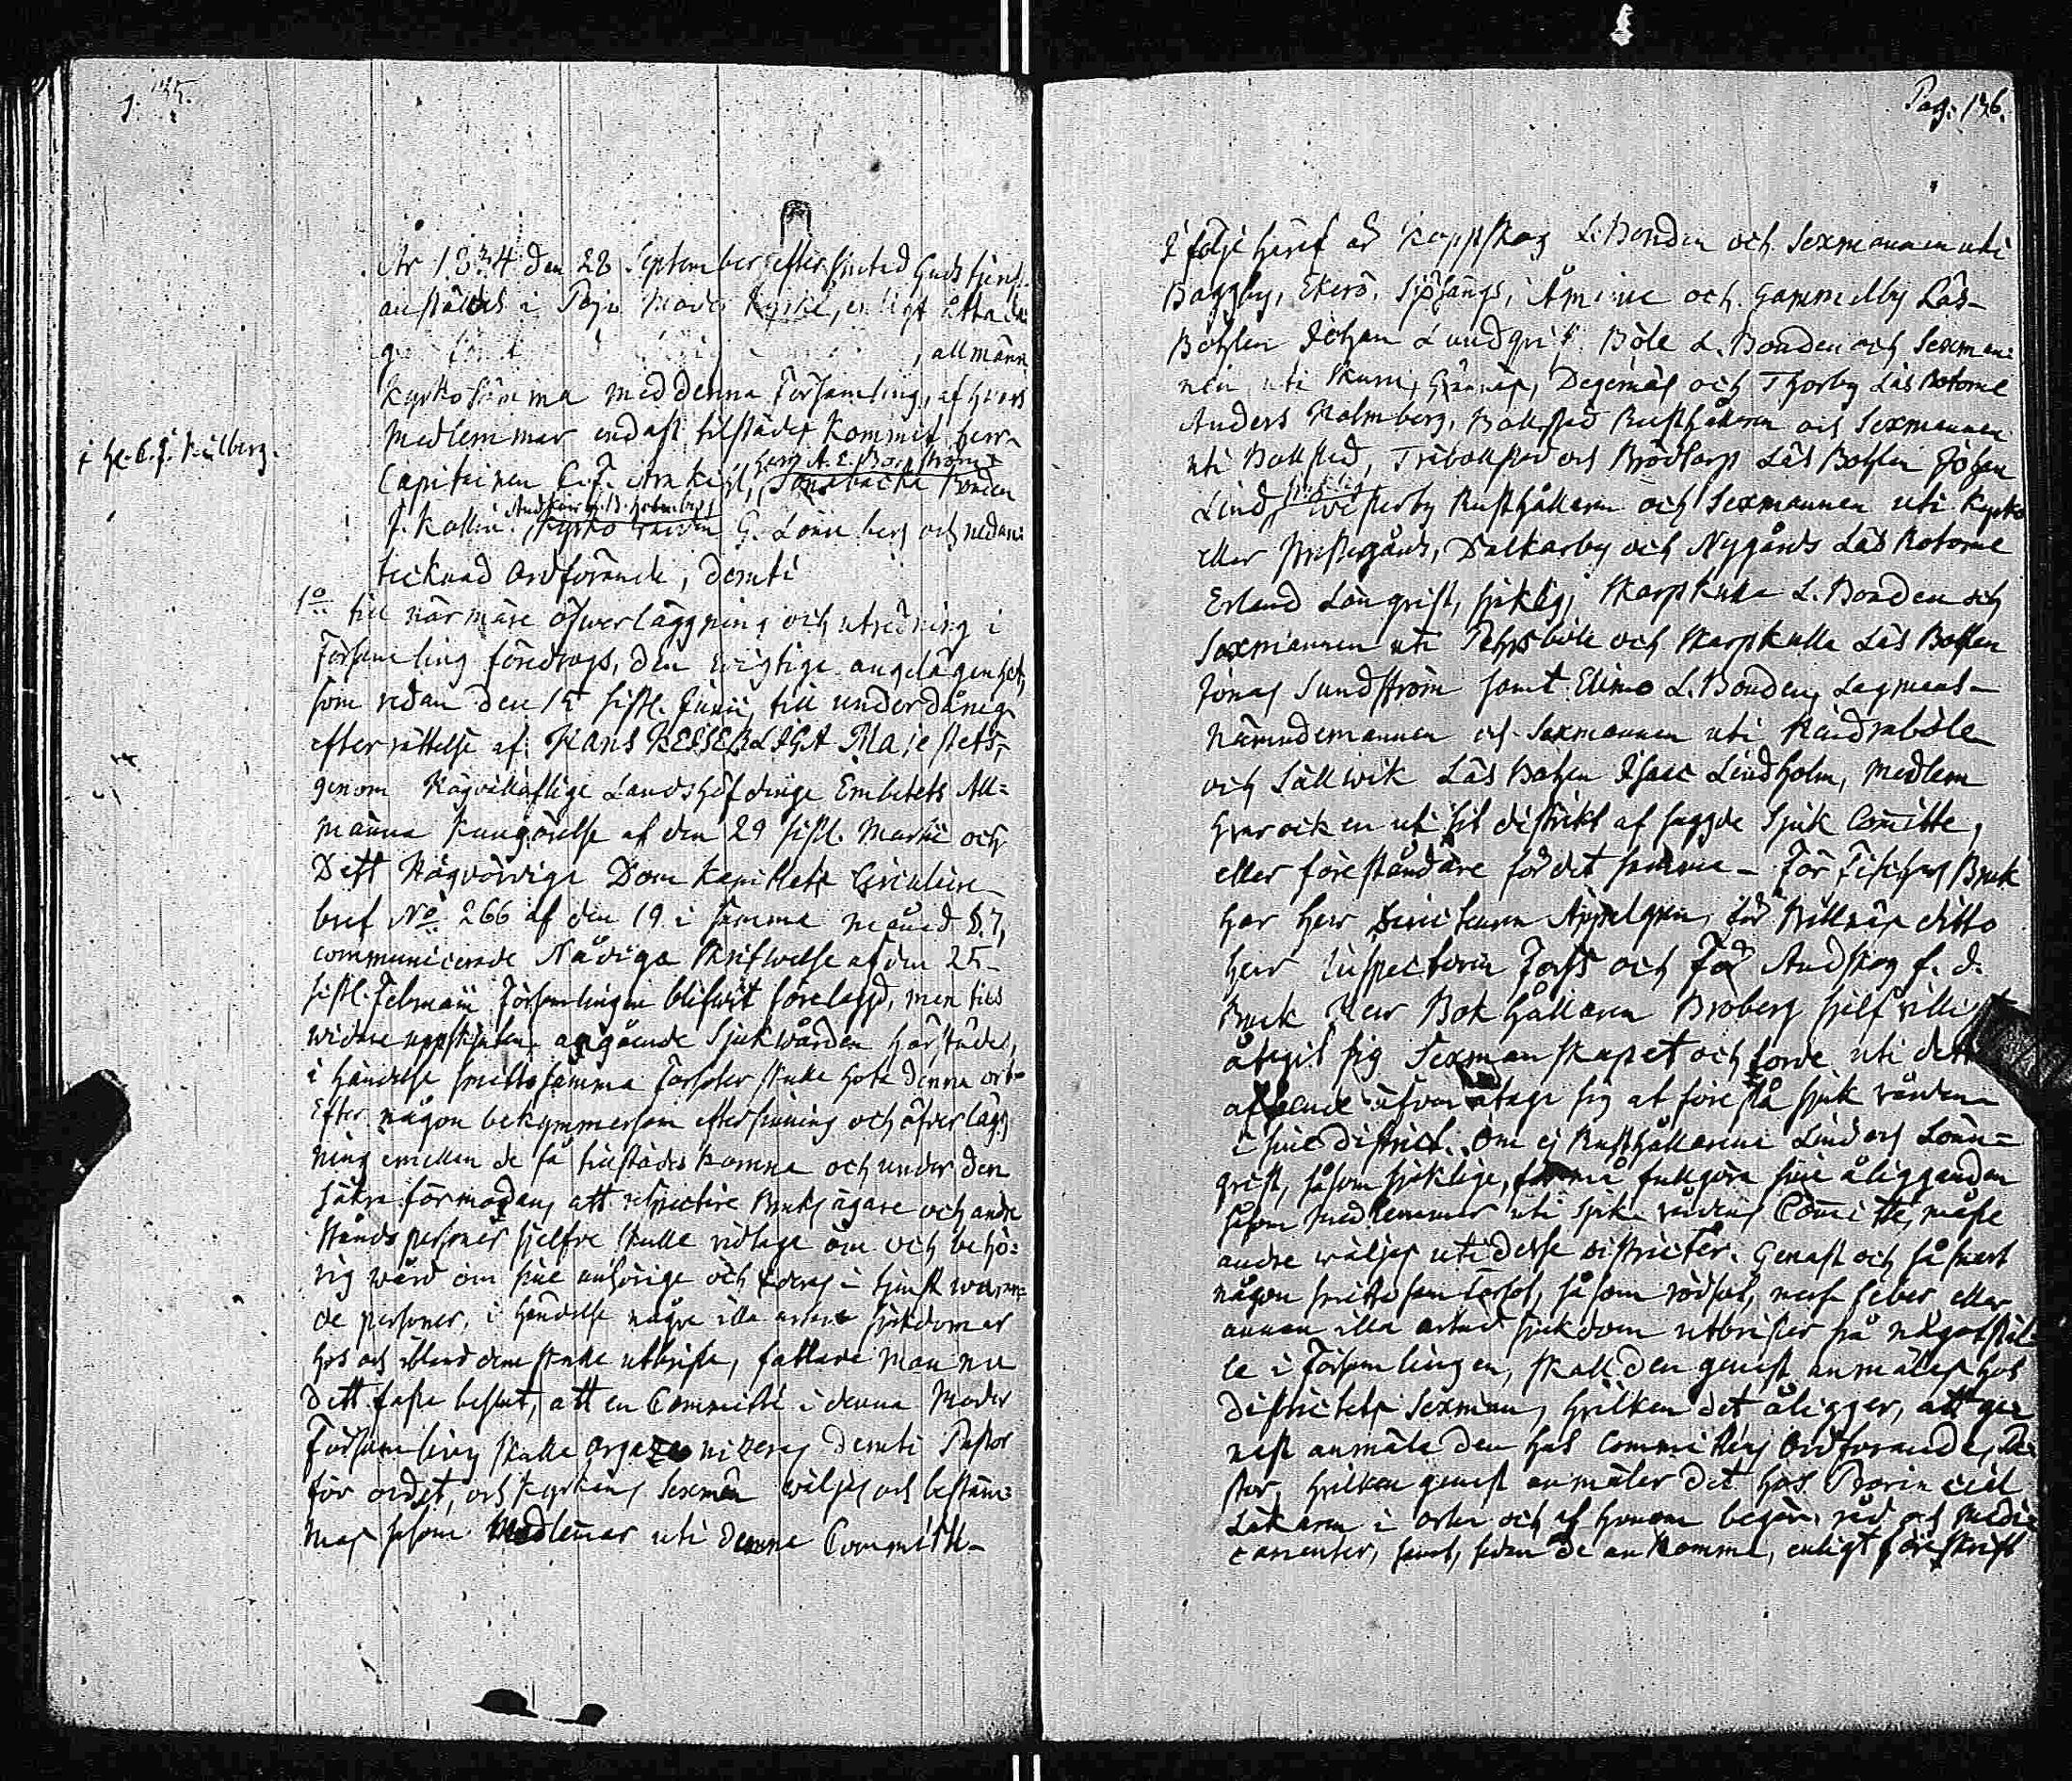 Pag. 136.
År 1834 den 28 September efter slutad Gudstjenst
anstäldes i Pojo Moder Kyrka, enligt åtta da=
, allmänn
Kyrkostämma med denna Församling, af hvars
Medlemmar endast tilstädes kommit herr
Capitainen C. J.
J. Kollin G. Lönnberg och nedan=
tecknad Ordförande, deruti
1o till närmare öfverläggning och utredning i
Församling föredrogs, den wigtiga angelägenhet,
som redan den 15 sistl. Junii, till underdånig
efterrättelse af Hans KEJSERLIGA Majestets,
genom Högvälloflige Landshöfdinge Embetets All=
männa Kungörelse af den 29 sistl. Martii och
Dett Högvördige Dom Kapitlets Circulaire
bref No 266 af den 19 i samma månad §. 7,
communicerade Nådiga Skrifwelse af den 25
sistl. Februarii Församlingen blifwit förelaggd, men tills
widare uppskjuten angående Sjukwården härstädes,
i händelse smittosamma Farsoter skulle hota denna ort.
Efter någon bekymmersam eftersinning och öfverlägg
ning emellan de få tillstädes komna och under den
säkra förmodan, att respective Bruks ägare och andra
Stånds personer sjelfve skulle vidtaga om och behö=
rig wård om sine anhörige och deras i tjenst waran=
de personer, i händelse några illa artade sjukdomar
hos och ibland dem skulle utbrista, fattade man nu
dett fasta beslut, att en Committé i denna Moder
Församling skulle organizeras deruti Pastor
för ordet, och Kyrkans Sexmän wäljas och bestäm=
mas såsom Medlemmar uti denna Committé
I följe häraf är Koppskog L. Bonden och Sexmannen uti
Baggby, Ekerö, Sjösängs, Åminne och Gammelby Läs-
Bohlen Johan Lundqvist. Böle L. Bonden och Sexman=
nen uti Skuru, Grännäs, Degernäs och Thorby Läs Rotorne
Anders Holmberg, Bollstad Rusthållaren och Sexmannen
uti Bollstad, Träbollstad och Brödtorp Läs Bohlen Johan
Lind, Westerby Rusthållaren och Sexmannen uti Kyrko
eller Prestegårds, Dalkarby och Nygårds Läs Rotorne
Erland Lönqvist, sjuklig, Skarpkulla L. Bonden och
Sexmannen uti Pehrsböle och Skarpkulla Läs Bohlen
Jonas Sundström samt Elimo L. Bonden, Lagmans-
Nämndemannen och Sexmannen uti Räidraböle
och Sällwik Läs Bohlen Isaac Lindholm, Medlem
hvar och en uti sit distrikt af sagde Sjuk Comitte,
eller föreståndare för det samma - För Fiskars Bruk
har Herr Appelgren, för Billnäs ditto
Herr Inspectoren Forss och för Antskog f. d.
Bruk Herr Bokhållaren Broberg sjelf villi
åtagit sig Sexmanskapet och torde uti dett
afseende äfven åtaga sig at förestå sjuk vården
i sine district. Om ej Rusthållarene Lind och Lönn=
qvist, såsom sjuklige, förmå fullgöra sine åligganden
såsom medlemmar uti Sjuk vårdens Comitté, måste
andre wäljas uti desse districter. Genast och så snart
någon smittosam Farsot, så som rödsot, nerf feber eller
annan illa artad sjukdom utbrister på någotstäl=
le i Församlingen, skall den genast anmälas hos
districtets Sexman, hvilken det åligger, att ge=
nast anmäla den hos Committéns Ordförande, Pa=
stor, hvilken genast anmäler det hos Provincial
Läkaren i orten och af honom begär råd och Medi=
camenter, samt, sedan de ankomma, enligt föreskrift